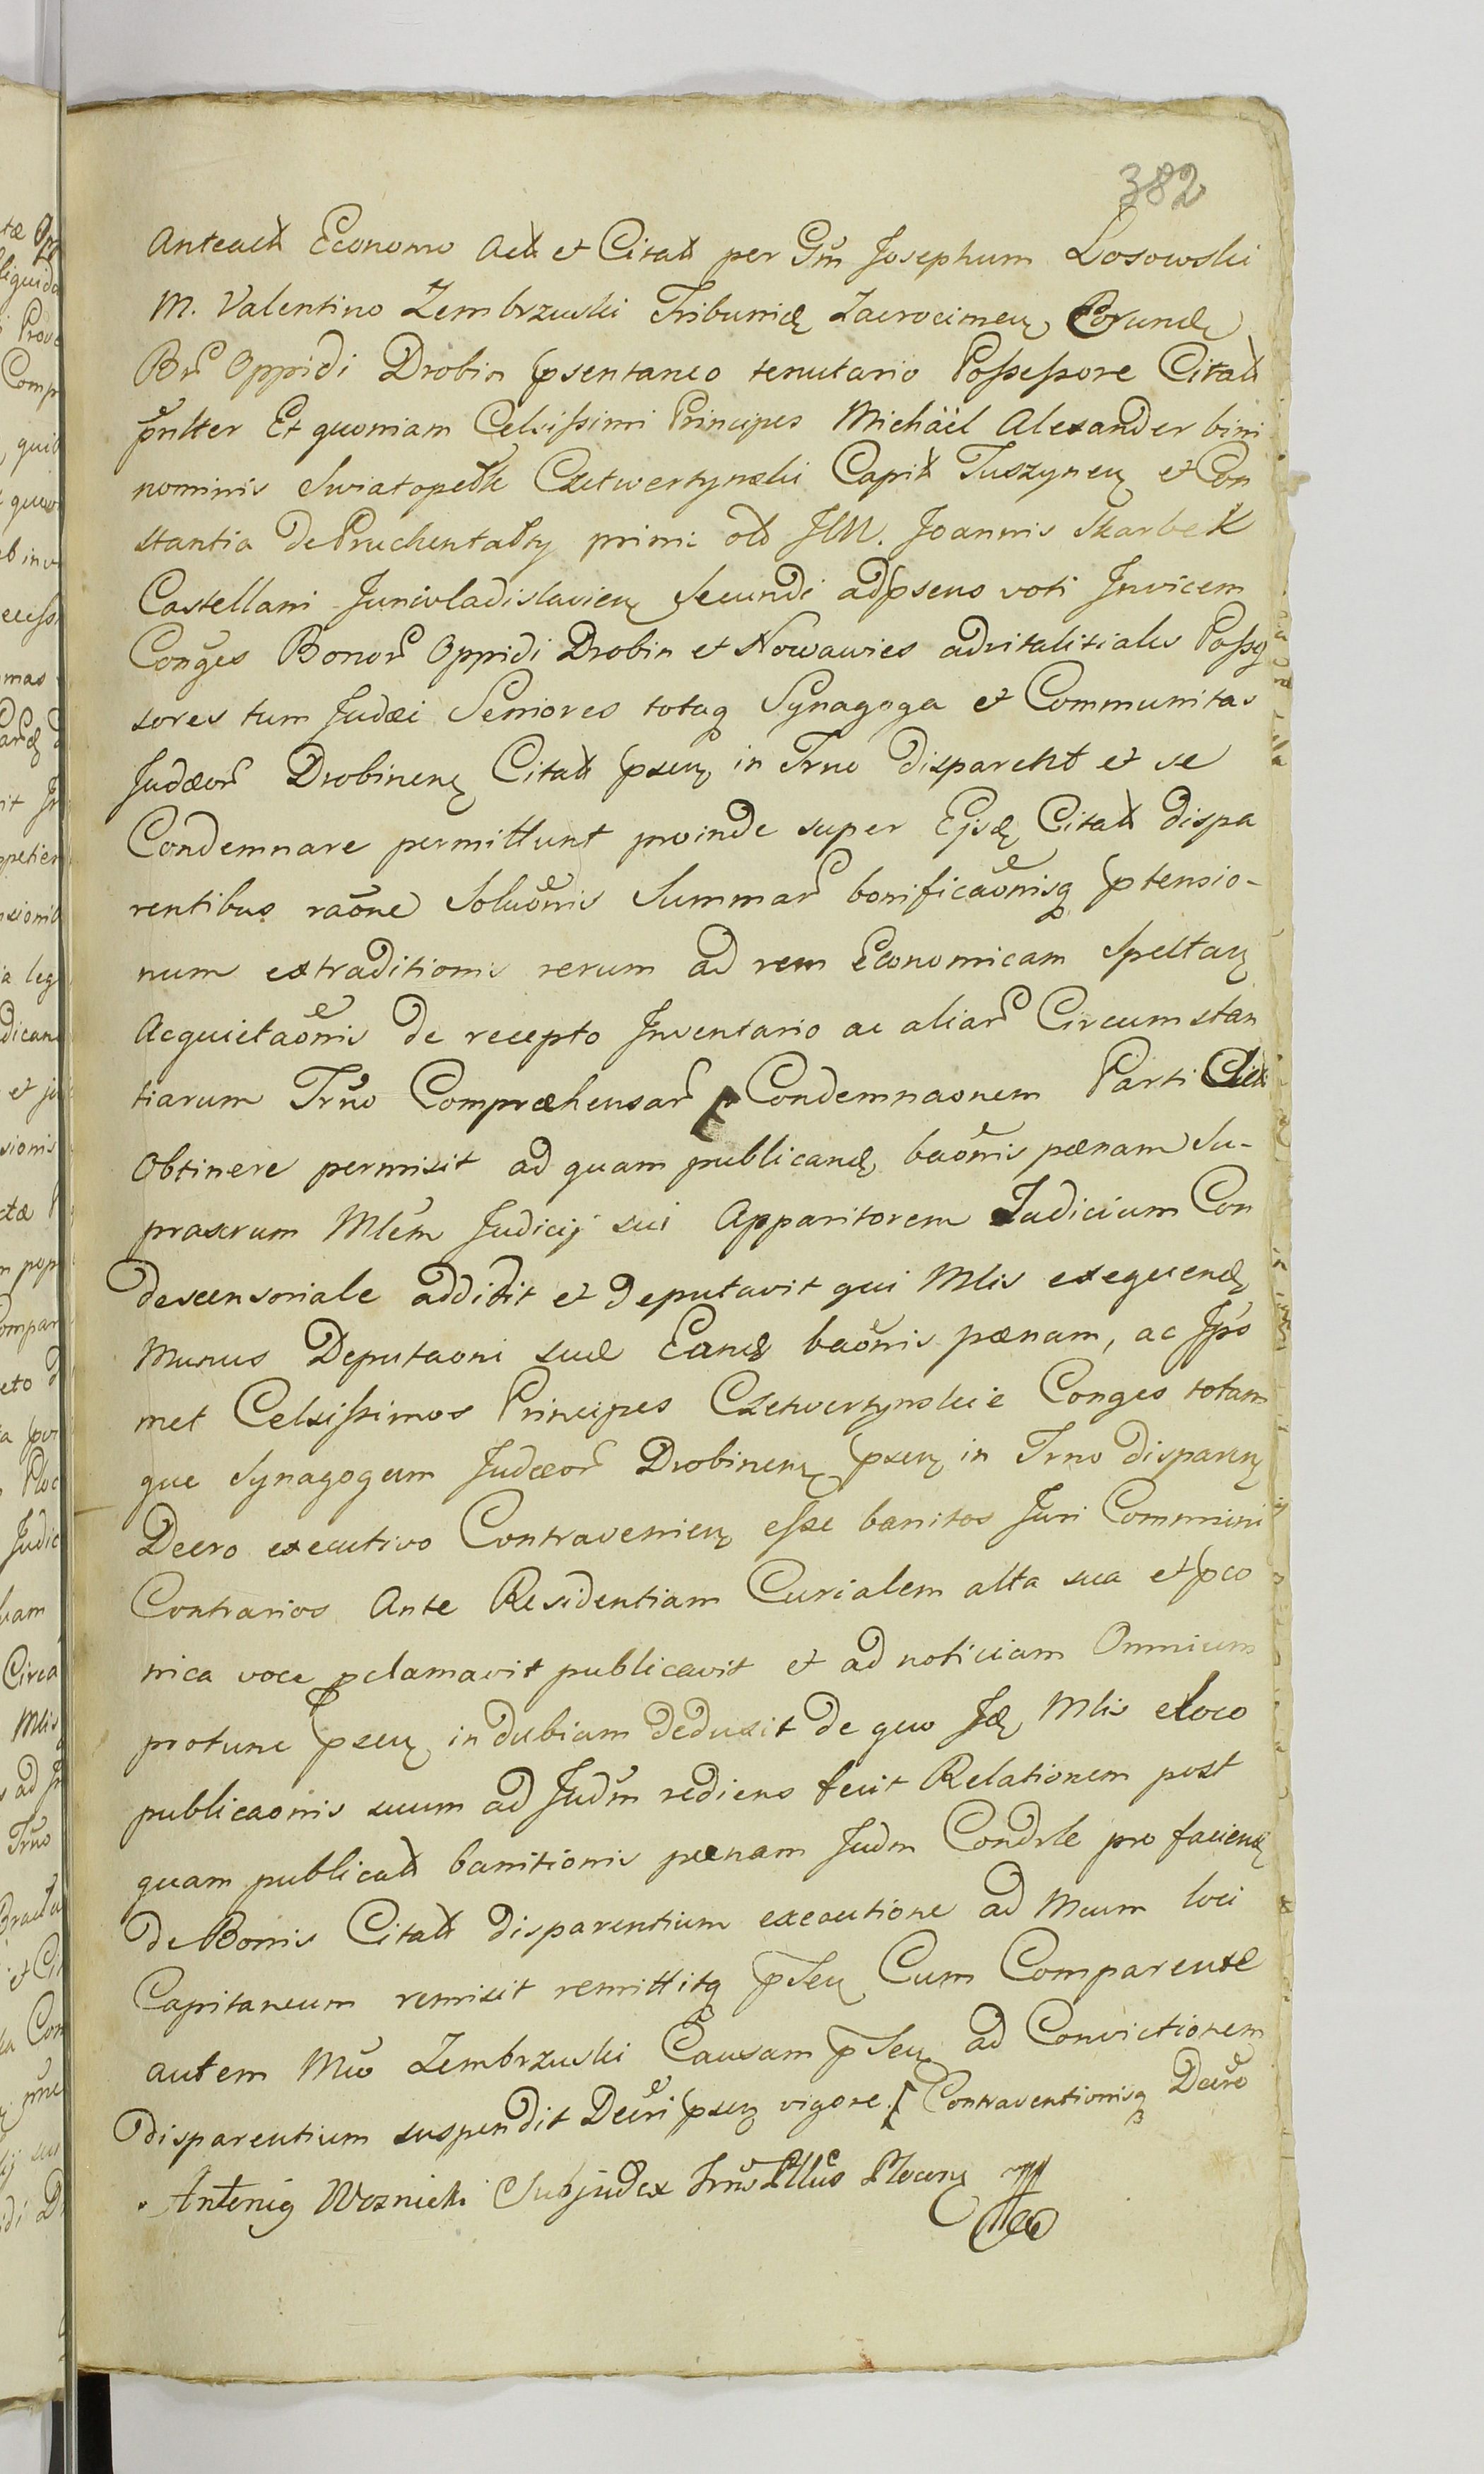 382
Anteact Economo Act et Citat per Gm Josephum Losowski
M. Valentino Zembrzuski Tribunid Zacrocimen Eorund
Br Oppidi Drobin psentaneo tenutario Possessore Citat
pnlter Et quoniam Celsissimi Principes Michäel Alexander bini
nominis Swiatopełk Czetwertynski Capit Tuszynen et Con
stantia de Pruchentały primi olo JllM. Joannis Skarbek
Castellani Junivladislavien Secundi adpsens voti Invicem
Conges Bonor Oppidi Drobin et Nowawies advitalitiales Posses
sores tum Judæi Seniores totaq Synagoga et Communitas
Judæor Drobinen Citat psen in Trno disparent et se
Condemnare permittunt proinde super Ejsd Citat dispa
rentibus raone Soluonis Summar bonificaonisq ptensio-
num extraditionis rerum ad rem Economicam Spectan
Acquietaonis de recepto Inventario ac aliar Circumstan
tiarum Trno Compræhensar Condemnaonem Parti
Obtinere permisit ad quam publicand baonis pænam Su-
prascrum Mlem Judicij sui Apparitorem Judicium Con
descensoriale addidit et deputavit qui Mlis exequend
Munus Deputaoni suæ Eand baonis pænam, ac Jpso
met Celsissimos Principes Czetwertynskie Conges totam
que Synagogam Judæor Drobinen psen in Trno disparen
Decro executivo Contravenien esse banitos Juri Communi
Contrarios Ante Residentiam Curialem alta sua et pco
nica voce pclamavit publicavit et ad noticiam Omnium
protunc psen indubiam deduxit de quo Jd Mlis eloco
publicaonis suum ad Judm rediens fecit Relationem post
quam publicat banitionis pænam Judm Condrle pro faciend
de Bonis Citat disparentium executione ad Mcum loci
Capitaneum remisit remittitq pSen Cum Comparente
autem Mco Zembrzuski Causam pSen ad Convictionem
disparentium suspendit Decri psen vigore Contraventionisq Decro
Antonig Woznicki Subjudex Trris Pllus Plocen